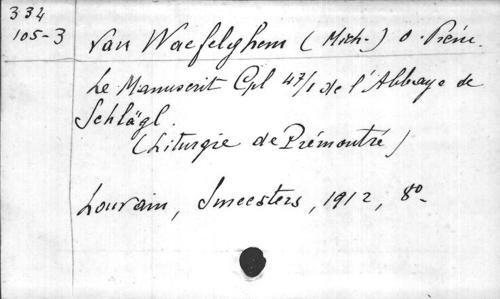 334
105-3
Van Waefelghem (Mich.) O. Prém.
Le Manuscrit Cpl 47/1 de l'Abbaye de
Schlägl.
(Liturgie de Prémontré)
Louvain, Smeesters, 1912, 8°